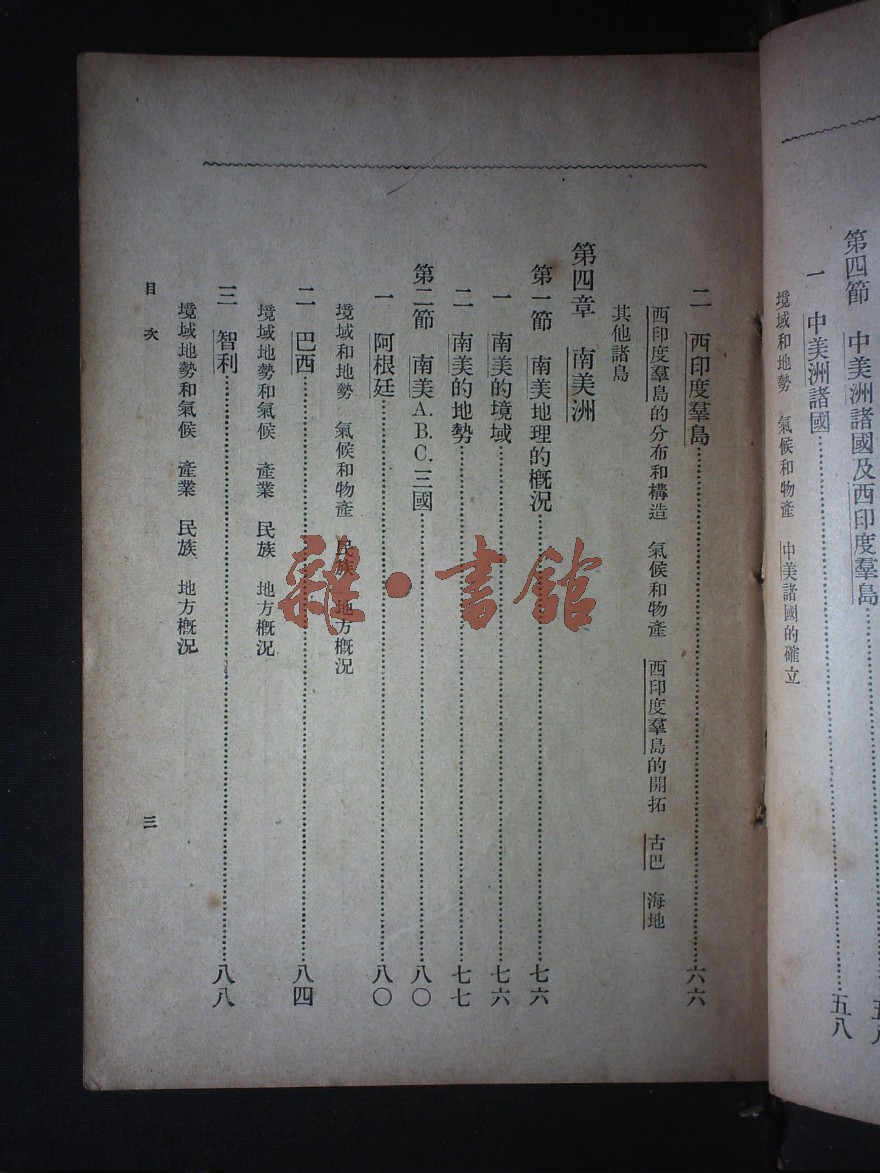 第四節　中美洲諸國及西印度羣島……五八
一　中美洲諸國……五八
境域和地勢　氣候和物產　中美諸國的確立
二　西印度羣島……六六
西印度羣島的分布和構造　氣候和物產　西印度羣島的開拓　古巴　海地
其他諸島
第四章　南美洲
第一節　南美地理的概況……七六
一　南美的境域……七六
二　南美的地勢……七七
第二節　南美A.B.C.三國……八〇
一　阿根廷……八〇
境域和地勢　氣候和物產　民族　地方概況
二　巴西……八四
境域地勢和氣候　產業　民族　地方概況
三　智利……八八
境域地勢和氣候　產業　民族　地方概況
目次　三
雜·書館